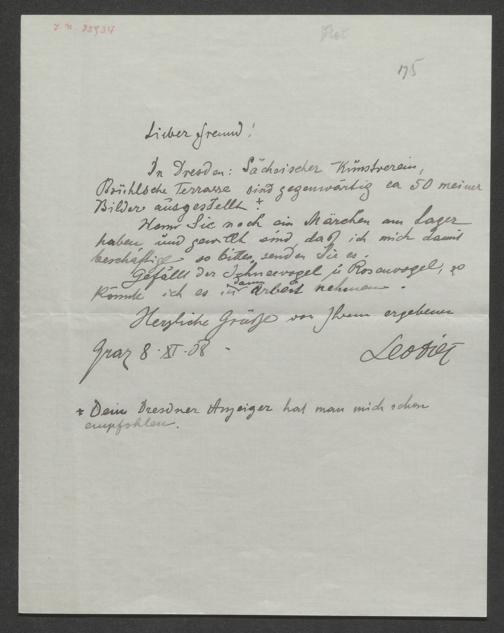 175
Lieber Freund!
In Dresden: Sächsischer Kunstverein,
Brühlsche Terrasse sind gegenwärtig ca 50 meiner
Bilder ausgestellt. +
Wenn Sie noch ein Märchen am Lager
haben und gewillt sind, daß ich mich damit
beschäftige so bitte, senden Sie es.
Gefällt der Schneevogel u Rosenvogel, so
könnte ich es dann in Arbeit nehmen.
Herzliche Grüße von Ihrem ergebenen
Graz 8. XI. 08 -
+ Dem Dresdner Anzeiger hat man mich schon
empfohlen.